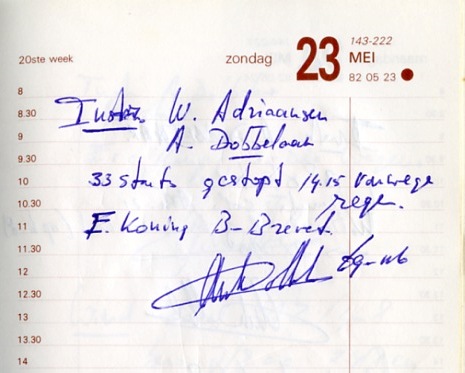 143-222
20ste week zondag 23 MEI
82 05 23
8
8.30 Instr. W. Adriaansen
9 A. Dobbelaar
9.30
10 33 starts gestopt 14.15 vanwege
10.30 regen.
11 E. Koning B-Brevet.
11.30
12
12.30
13
13.30
14